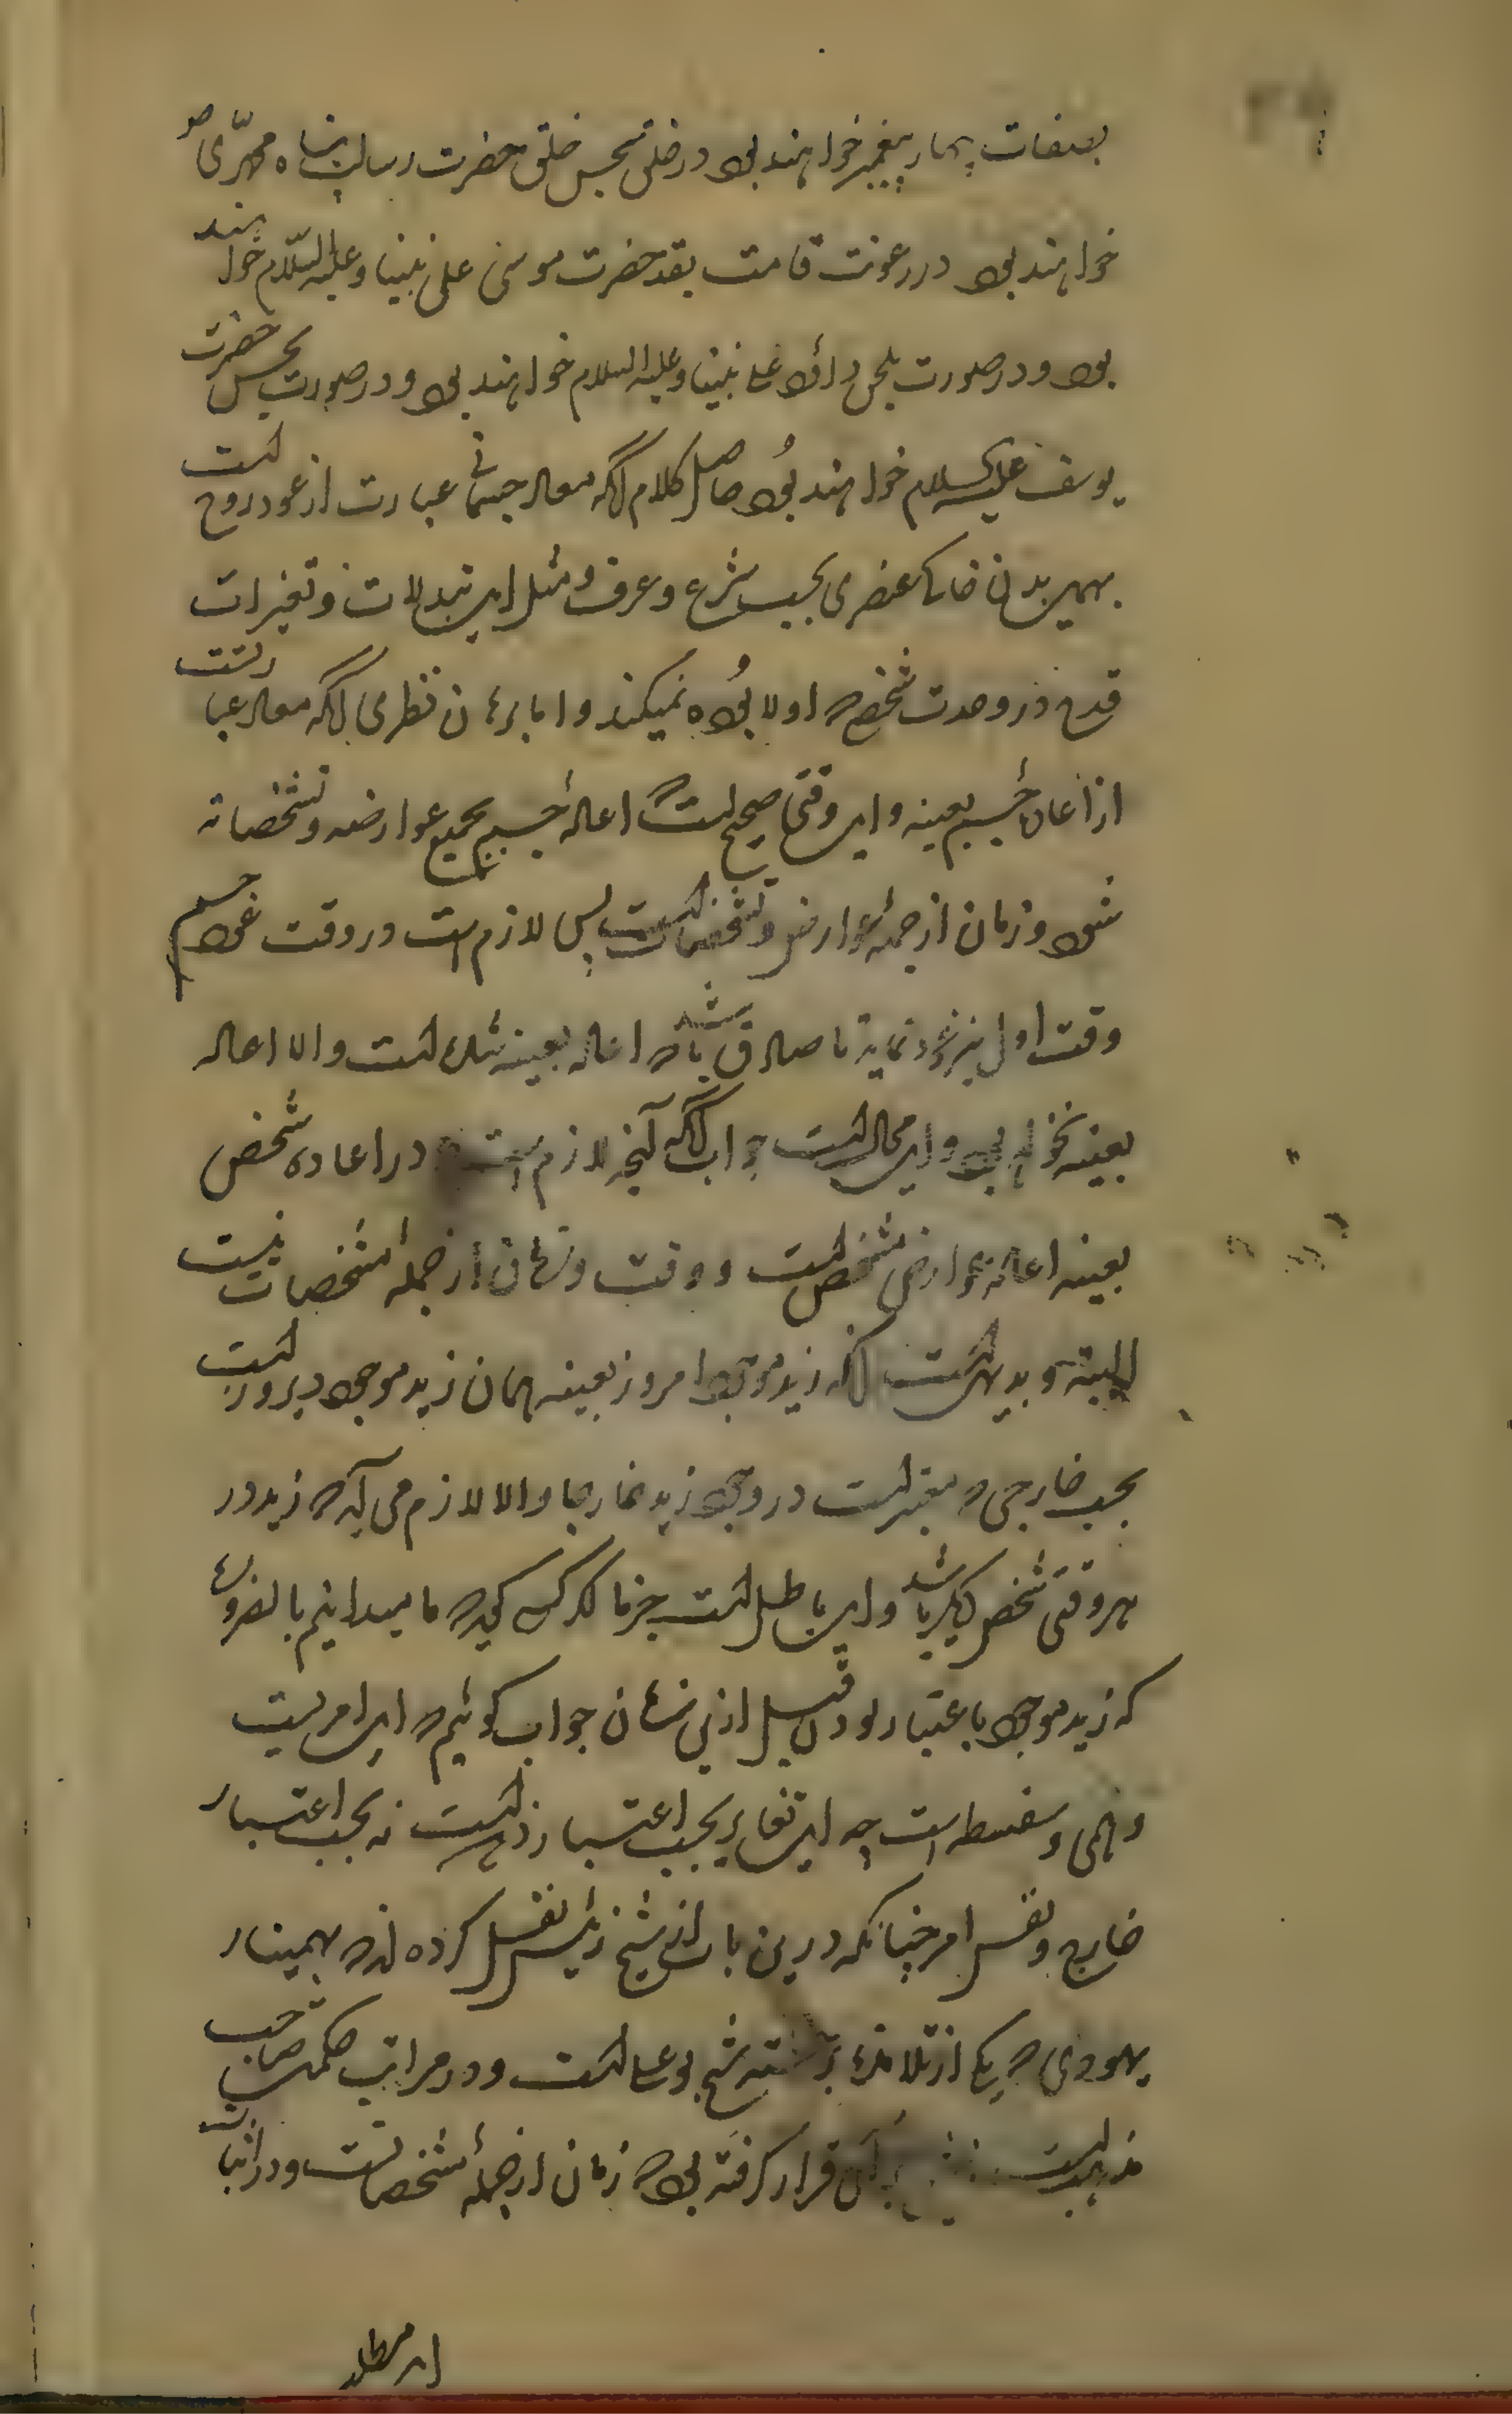 بصفات چهار پیغمبر خواهند بود در خلق بحسن خلق حضرت رسالت پناه محمدی ص
خواهند بود در رعونت قامت بقد حضرت موسی علی نبینا و علیه السلام خواهند
بود و در صورت بلحن داود علی نبینا و علیه السلام خواهند بود و در صورت بحسن حضرت
یوسف علیه السلام خواهند بود حاصل کلام آنکه معاد جسمانی عبارت از عود روح است
بهمین بدن خاکی عنصری بحسب شرع و عرف و مثل این تبدلات و تغیرات
قدح در وحدت شخص که اولا بوده نمیکند و اما برهان نظری آنکه معاد عبارتست
از اعاده جسم بعینه و این وقتی صحیح است که اعاده جسم بجمیع عوارضه و تشخصاته
شود و زمان از جمله عوارض و تشخصات است پس لازم است در وقت عود جسم
وقت اول نیز عود نماید تا صادق باشد که اعاده بعینه شده است و الا اعاده
بعینه نخواهد بود و این محال است جواب آنکه آنچه لازم است در اعاده شخص
بعینه اعاده عوارض مشخص است و وقت و زمان از جمله مشخصات نیست
البته و بدیهی است آنکه زید موجود امروز بعینه همان زید موجود دیروز است
بحسب خارجی که معتبر است در وجود زید خارجا و الا لازم می آید که زید در
هر وقتی شخص دیگر باشد و این باطل است جزما اگر کسی گوید که ما میدانیم بالضروره
که زید موجود باعتبار بودن قبل ازین زمان جواب گوئیم که این امریست
وهمی و سفسطه است چه این تغایر بحسب اعتبار ذهن است نه بحسب اعتبار
خارج و نفس امر چنانکه درین باب از شیخ رئیس نقل کرده اند که بهمنیار
یهودی که یکی از تلامذه شیخ بوعلی است و در مراتب حکمت صاحب
مذهب است قرار گرفته بود که زمان از جمله مشخصات است و در اثبات
این مطلب